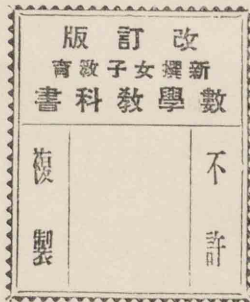 改訂版
新撰女子敎育
數學敎科書
不許
複製